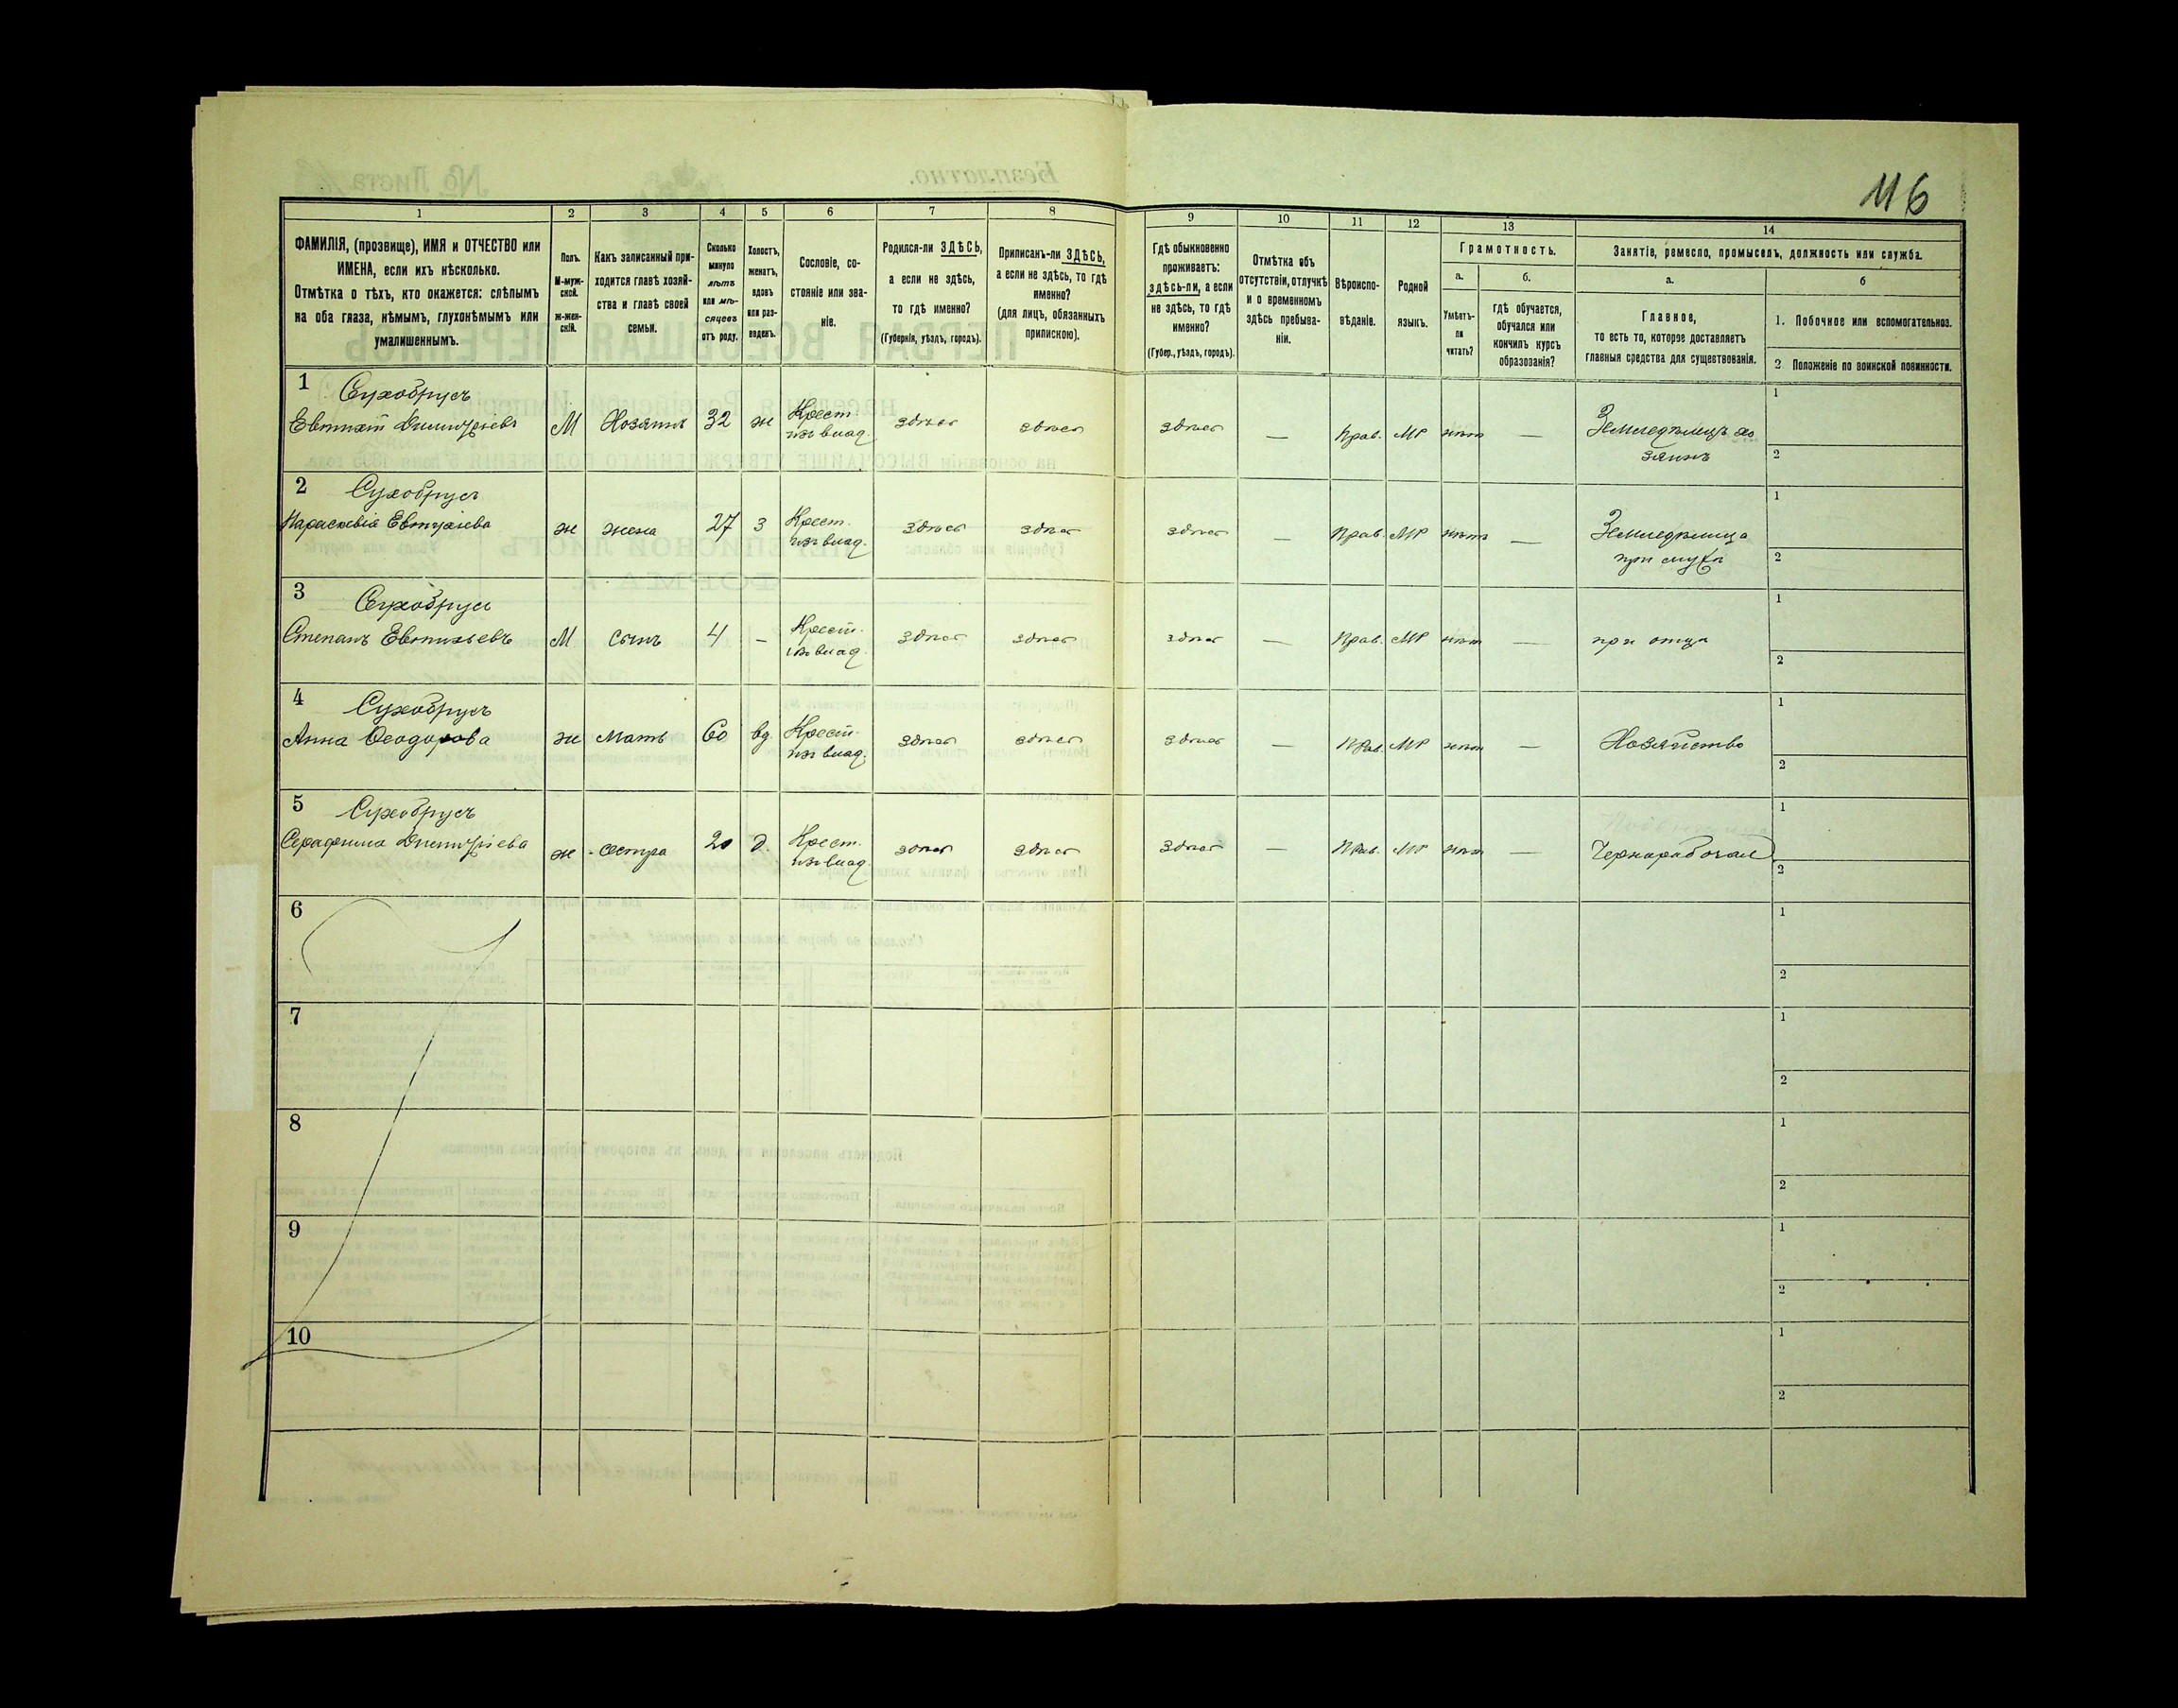 116
1 2 3 4 5 6 7 8 9 10 11 12 13 14
ФАМИЛІЯ, (прозвище), ИМЯ и ОТЧЕСТВО или
ИМЕНА, если ихъ нѣсколько.
Отмѣтка о тѣхъ, кто окажется: слѣпымъ
на оба глаза, нѣмымъ, глухонѣмымъ или
умалишеннымъ.
Полъ.
М-муж-
ской.
ж-жен-
скій.
Какъ записанный при-
ходится главѣ хозяй-
ства и главѣ своей
семьи.
Сколько
минуло
лѣтъ
или мѣ-
сяцевъ
отъ роду.
Холостъ,
женатъ,
вдовъ
или раз-
веденъ.
Сословіе, со-
стояніе или зва-
ніе.
Родился-ли ЗДѢСЬ,
а если не здѣсь,
то гдѣ именно?
(Губернія, уѣздъ, городъ).
Приписанъ-ли ЗДѢСЬ,
а если не здѣсь, то гдѣ
именно?
(для лицъ, обязанныхъ
припискою).
Гдѣ обыкновенно
проживаетъ:
здѣсь-ли, а если
не здѣсь, то гдѣ
именно?
(Губер., уѣздъ, городъ).
Отмѣтка объ
отсутствіи, отлучкѣ
и о временномъ
здѣсь пребыва-
ніи.
Вѣроиспо-
вѣданіе.
Родной
языкъ.
Грамотность.
а.
Умѣетъ-
ли
читать?
б.
гдѣ обучается,
обучался или
кончилъ курсъ
образованія?
Занятіе, ремесло, промыселъ, должность или служба.
а.
Главное,
то есть то, которое доставляетъ
главныя средства для существованія.
б
1. Побочное или вспомогательное.
2 Положеніе по воинской повинности.
1 Сухобрусъ
Евтихій Димитріевъ М Хозяинъ 32 ж Крест. изъ влад. здѣсь здѣсь здѣсь — Прав. МР нѣтъ — Земледѣлецъ хо
зяинъ
1
2
2 Сухобрусъ
Параскевія ж жена 27 з Крест. изъ влад. здѣсь здѣсь здѣсь — Прав. МР нѣтъ — Земледѣлица
при мужѣ
1
2
3 Сухобрусъ
Степанъ Евтихьевъ М сынъ 4 — Крест. изъ влад. здѣсь здѣсь здѣсь — Прав. МР нѣтъ — при отцѣ
1
2
4 Сухобрусъ
Анна Ѳеодорова ж мать 60 вд. Крест. изъ влад. здѣсь здѣсь здѣсь — Прав. МР нѣтъ — Хозяйство
1
2
5 Сухобрусъ
Серафима Димитріева ж сестра 20 д. Крест. изъ влад. здѣсь здѣсь здѣсь — Прав. МР нѣтъ — Чернорабочая
1
2
6
1
2
7
1
2
8
1
2
9
1
2
10
1
2